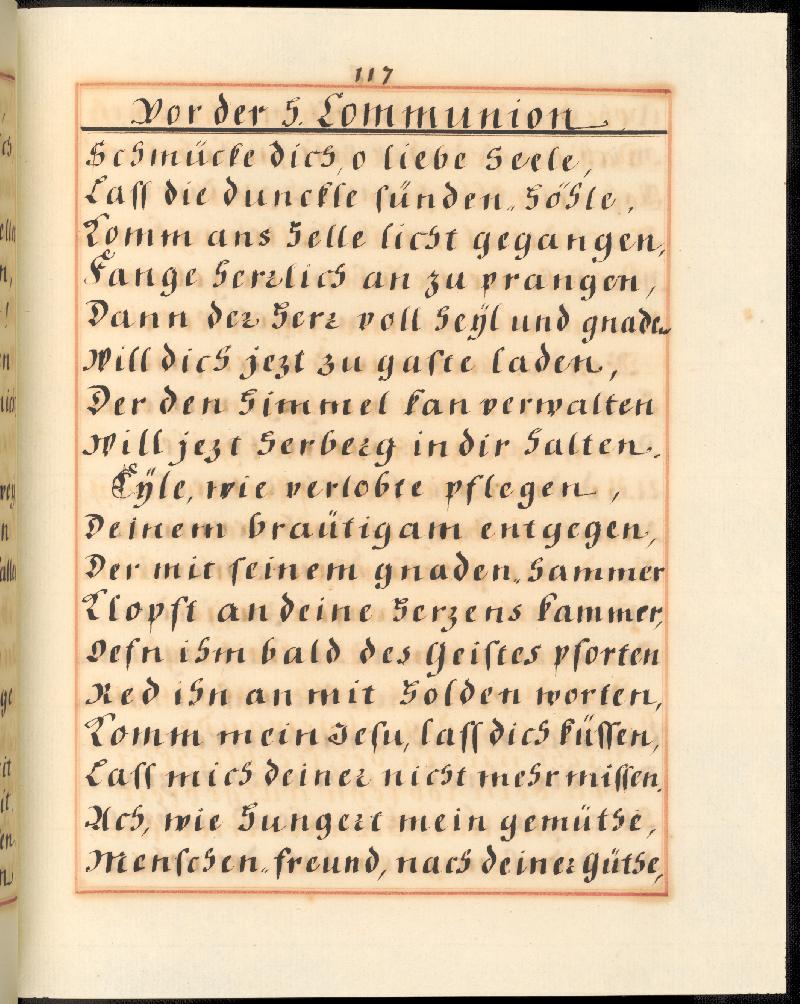 117
Vor der H. Communion
Schmücke dich, o liebe Seele,
Laſſ die dunckle ſünden-höhle,
Komm ans helle licht gegangen,
Fange herrlich an zu prangen,
Dann der Herr voll heÿl und gnaden
Will dich jezt zu gaſte laden,
Der den himmel kan verwalten
Will jezt herberg in dir halten.
Eÿle, wie verlobte pflegen,
Deinem braütigam entgegen,
Der mit ſeinem gnaden-hammer
Klopft an deine herzens kammer,
Oefn ihm bald des Geiſtes pforten
Red ihn an mit holden worten,
Komm mein Jeſu, laſſ dich küſſen,
Laſſ mich deiner nicht mehr miſſen.
Ach, wie hungert mein gemüthe,
Menſchen-freund, nach deiner güthe,